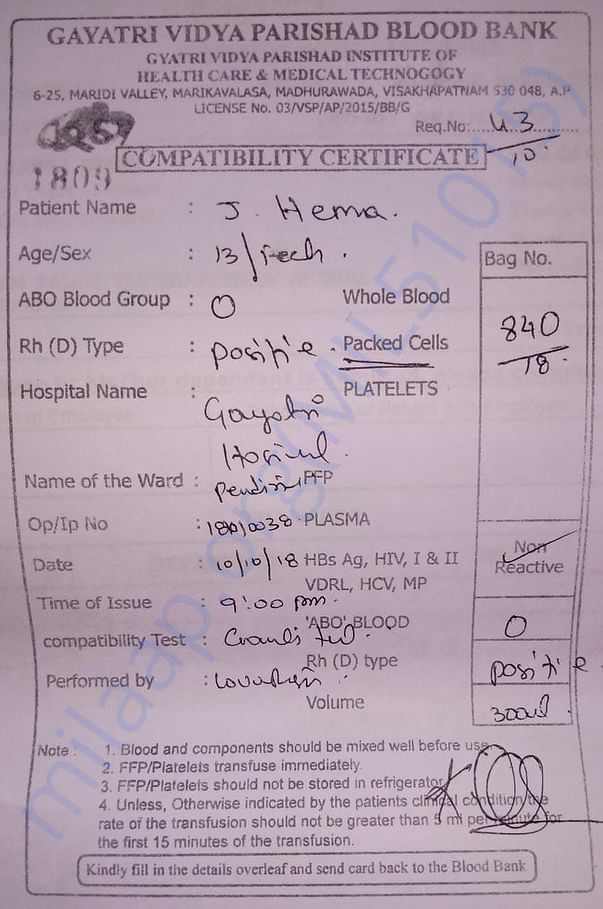 GAYATRI VIDYA PARISHAD BLOOD BANK
GYATRI VIDYA PARISHAD INSTITUTE OF
HEALTH CARE & MEDICAL TECHNOGOGY
6-25, MARIDI VALLEY, MARIKAVALASA, MADHURAWADA, VISAKHAPATNAM 530 048, A.P
LICENSE No. 03/VSP/AP/2015/BB/G
Req.No:....43.........
10
COMPATIBILITY CERTIFICATE
1809
Patient Name : J. Hema.
Age/Sex : 13/
Bag No.
ABO Blood Group : O Whole Blood
840/18
Rh (D) Type : positie. Packed Cells
Hospital Name : Gayatri PLATELETS
Name of the Ward : FFP
Op/Ip No : PLASMA
Date : 10/10/18 HBs Ag, HIV, I & II
VDRL, HCV, MP
Non Reactive
Time of Issue : 9:00 pm.
'ABO' BLOOD O
compatibility Test :
Rh (D) type positie
Performed by :
Volume 300ml
Note : 1. Blood and components should be mixed well before use
2. FFP/Platelets transfuse immediately.
3. FFP/Platelets should not be stored in refrigerator
4. Unless, Otherwise indicated by the patients clinical condition the
rate of the transfusion should not be greater than 5 ml per minute for
the first 15 minutes of the transfusion.
Kindly fill in the details overleaf and send card back to the Blood Bank